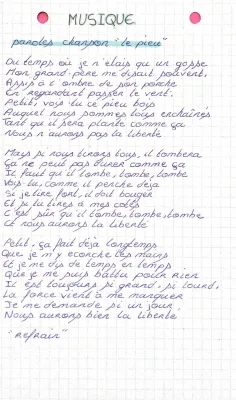 MUSIQUE
paroles chanson "le pieu"
Du temps où je n'étais qu'un gosse
Mon grand-père me disait souvent,
Assis à l'ombre de son porche
En regardant passer le vent:
Petit, vois-tu ce pieu de bois
Auquel nous sommes tous enchaînés
Tant qu'il sera planté comme ça
Nous n'aurons pas la liberté
Mais si nous tirons tous, il tombera
Ça ne peut pas durer comme ça
Il faut qu'il tombe, tombe, tombe
Vois-tu, comme il penche déjà
Si je tire fort, il doit bouger
Et si tu tires à mes côtés
C'est sûr qu'il tombe, tombe, tombe
Et nous aurons la liberté
Petit, ça fait déjà longtemps
Que je m'y écorche les mains
Et je me dis de temps en temps
Que je me suis battu pour rien
Il est toujours si grand, si lourd,
La force vient à me manquer
Je me demande si un jour
Nous aurons bien la liberté
"Refrain"